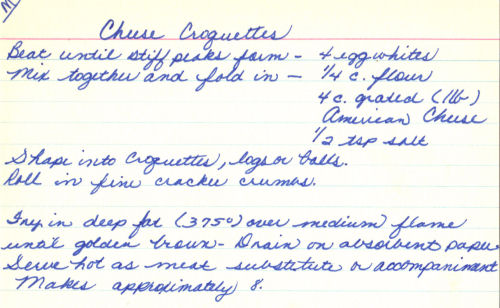 M
Cheese Croquettes
Beat until stiff peaks form - 4 egg whites
Mix together and fold in - 1/4 c. flour
4 c. grated (1 lb)
American Cheese
1/2 tsp salt
Shape into Croquettes, logs or balls.
Roll in fine cracker crumbs.
Fry in deep fat (375°) over medium flame
until golden brown - Drain on absorbent paper
Serve hot as meat substitute or accompaniment
Makes approximately 8.